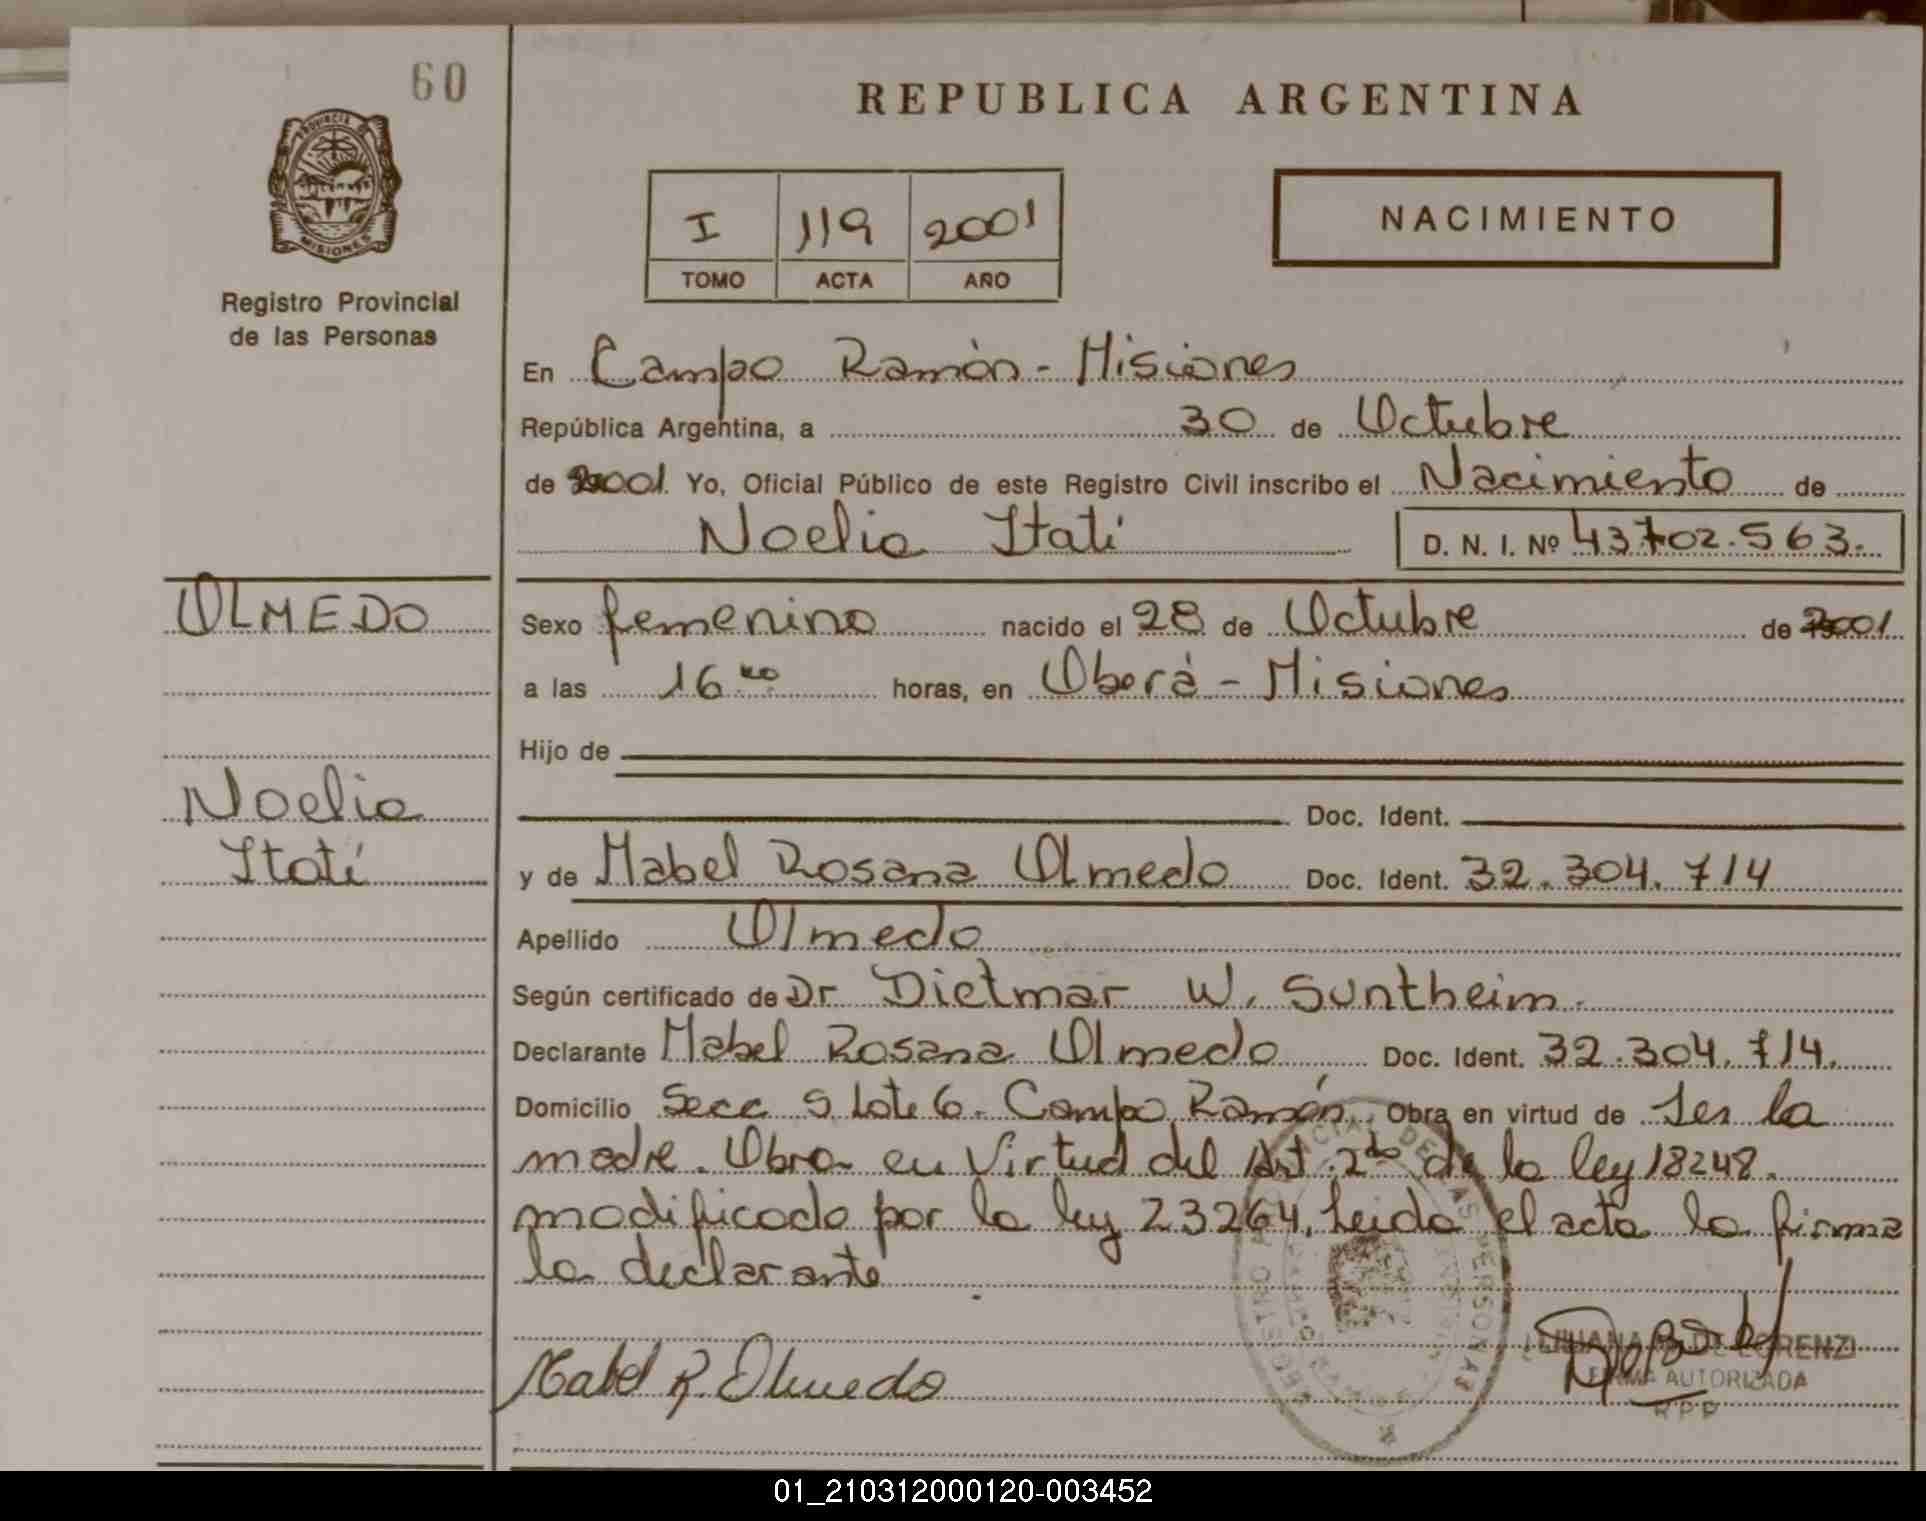 60
REPUBLICA ARGENTINA
PROVINCIA DE
MISIONES
Registro Provincial
de las Personas
I 119 2001
TOMO ACTA AÑO
NACIMIENTO
En Campo Ramón - Misiones
República Argentina, a 30 de Octubre
de 2001. Yo, Oficial Público de este Registro Civil inscribo el Nacimiento de
Noelia Itatí D. N. I. Nº 43702.563.
OLMEDO
Sexo femenino nacido el 28 de Octubre de 2001
a las 16 horas, en Oberá - Misiones
Hijo de
Noelia
Doc. Ident.
Itatí
y de Mabel Rosana Olmedo Doc. Ident. 32.304.714
Apellido Olmedo
Según certificado de Dr Dietmar W. Suntheim.
Declarante Mabel Rosana Olmedo Doc. Ident. 32.304.714.
Domicilio Secc 9 lote 6. Campo Ramón. Obra en virtud de Ser la
madre. Obra en Virtud del Art. 2do de la ley 18248.
modificado por la ley 23264. Leida el acta la firma
la declarante
Mabel R. Olmedo
DE LORENZI
FIRMA AUTORIZADA
RPP
01_210312000120-003452